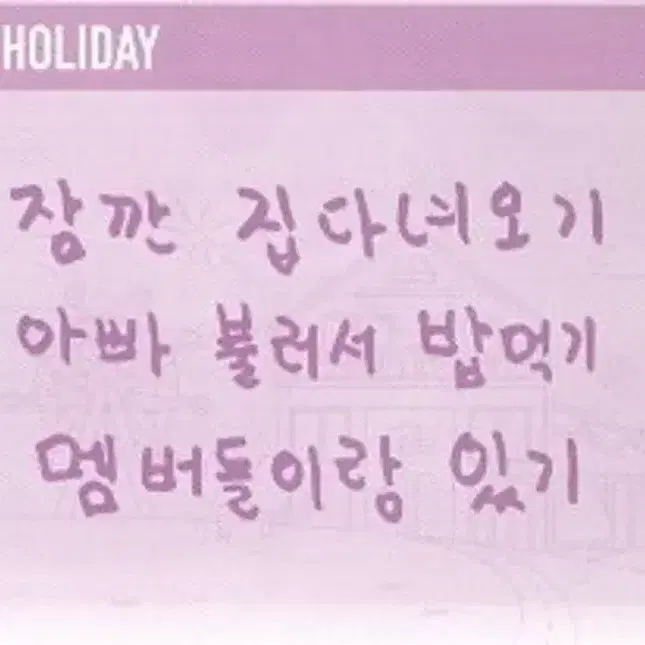 HOLIDAY
잠깐 집다녀오기
아빠 불러서 밥먹기
멤버들이랑 있기